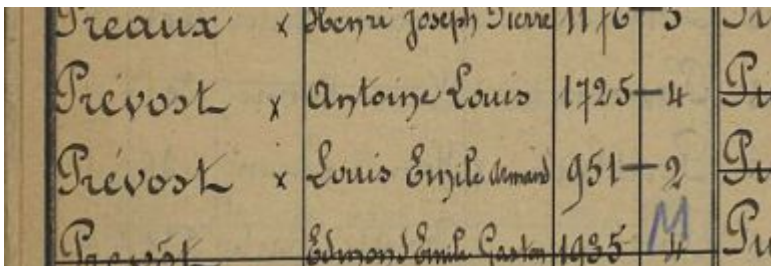 Préaux x Henri Joseph Pierre 1176-3
Prévost x Antoine Louis 1725-4
Prévost x Louis Emile Armand 951-2
Prevôt Edmond Emile Gaston 1935 M 4